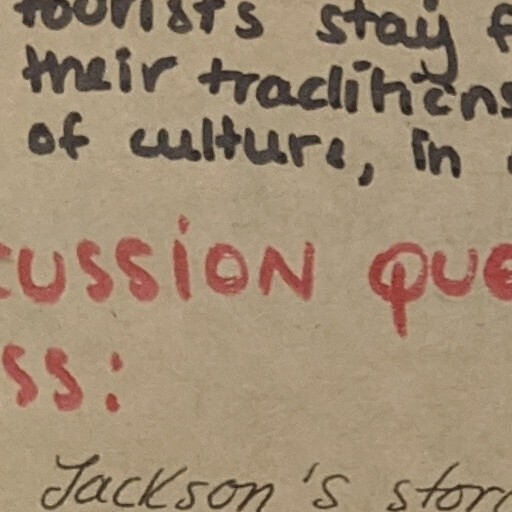 tourists stay f
their traditions
of culture, in
cussion que
ss:
Jackson's stor